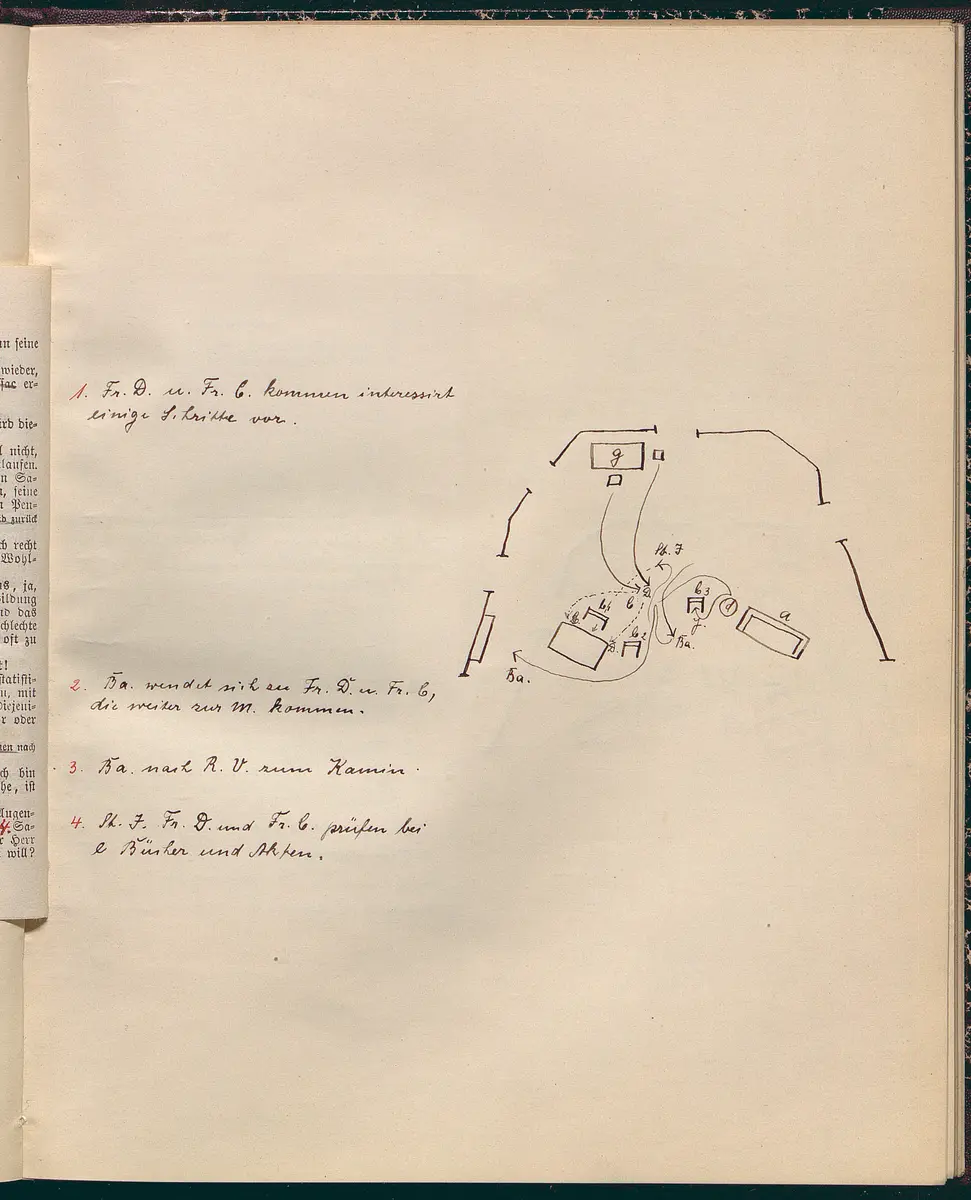 un seine
wieder,
er=
ird die=
l nicht,
laufen.
n Sa=
n, seine
n Pen=
zurück
ch recht
Wohl=
us, ja,
ildung
nd das
chlechte
oft zu
t!
statisti=
n, mit
Diejeni=
r oder
nen nach
ch bin
he, ist
Augen=
4. Sa=
r Herr
will?
1. Fr. D. u. Fr. C. kommen interessirt
einige Schritte vor.
2. Ba. wendet sich zu Fr. D. u. Fr. C,
die weiter zur M. kommen.
3. Ba. nach R. V. zum Kamin.
4. St. J. Fr. D. und Fr. C. prüfen bei
e Bücher und Akten.
g
St. J
D.
C
b1
b2
b3
d
a
J
C.
D.
Ba.
Ba.